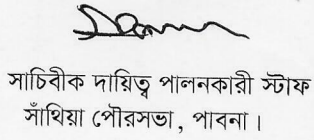 সাচিবীক দায়িত্ব পালনকারী স্টাফ
সাঁথিয়া পৌরসভা, পাবনা।